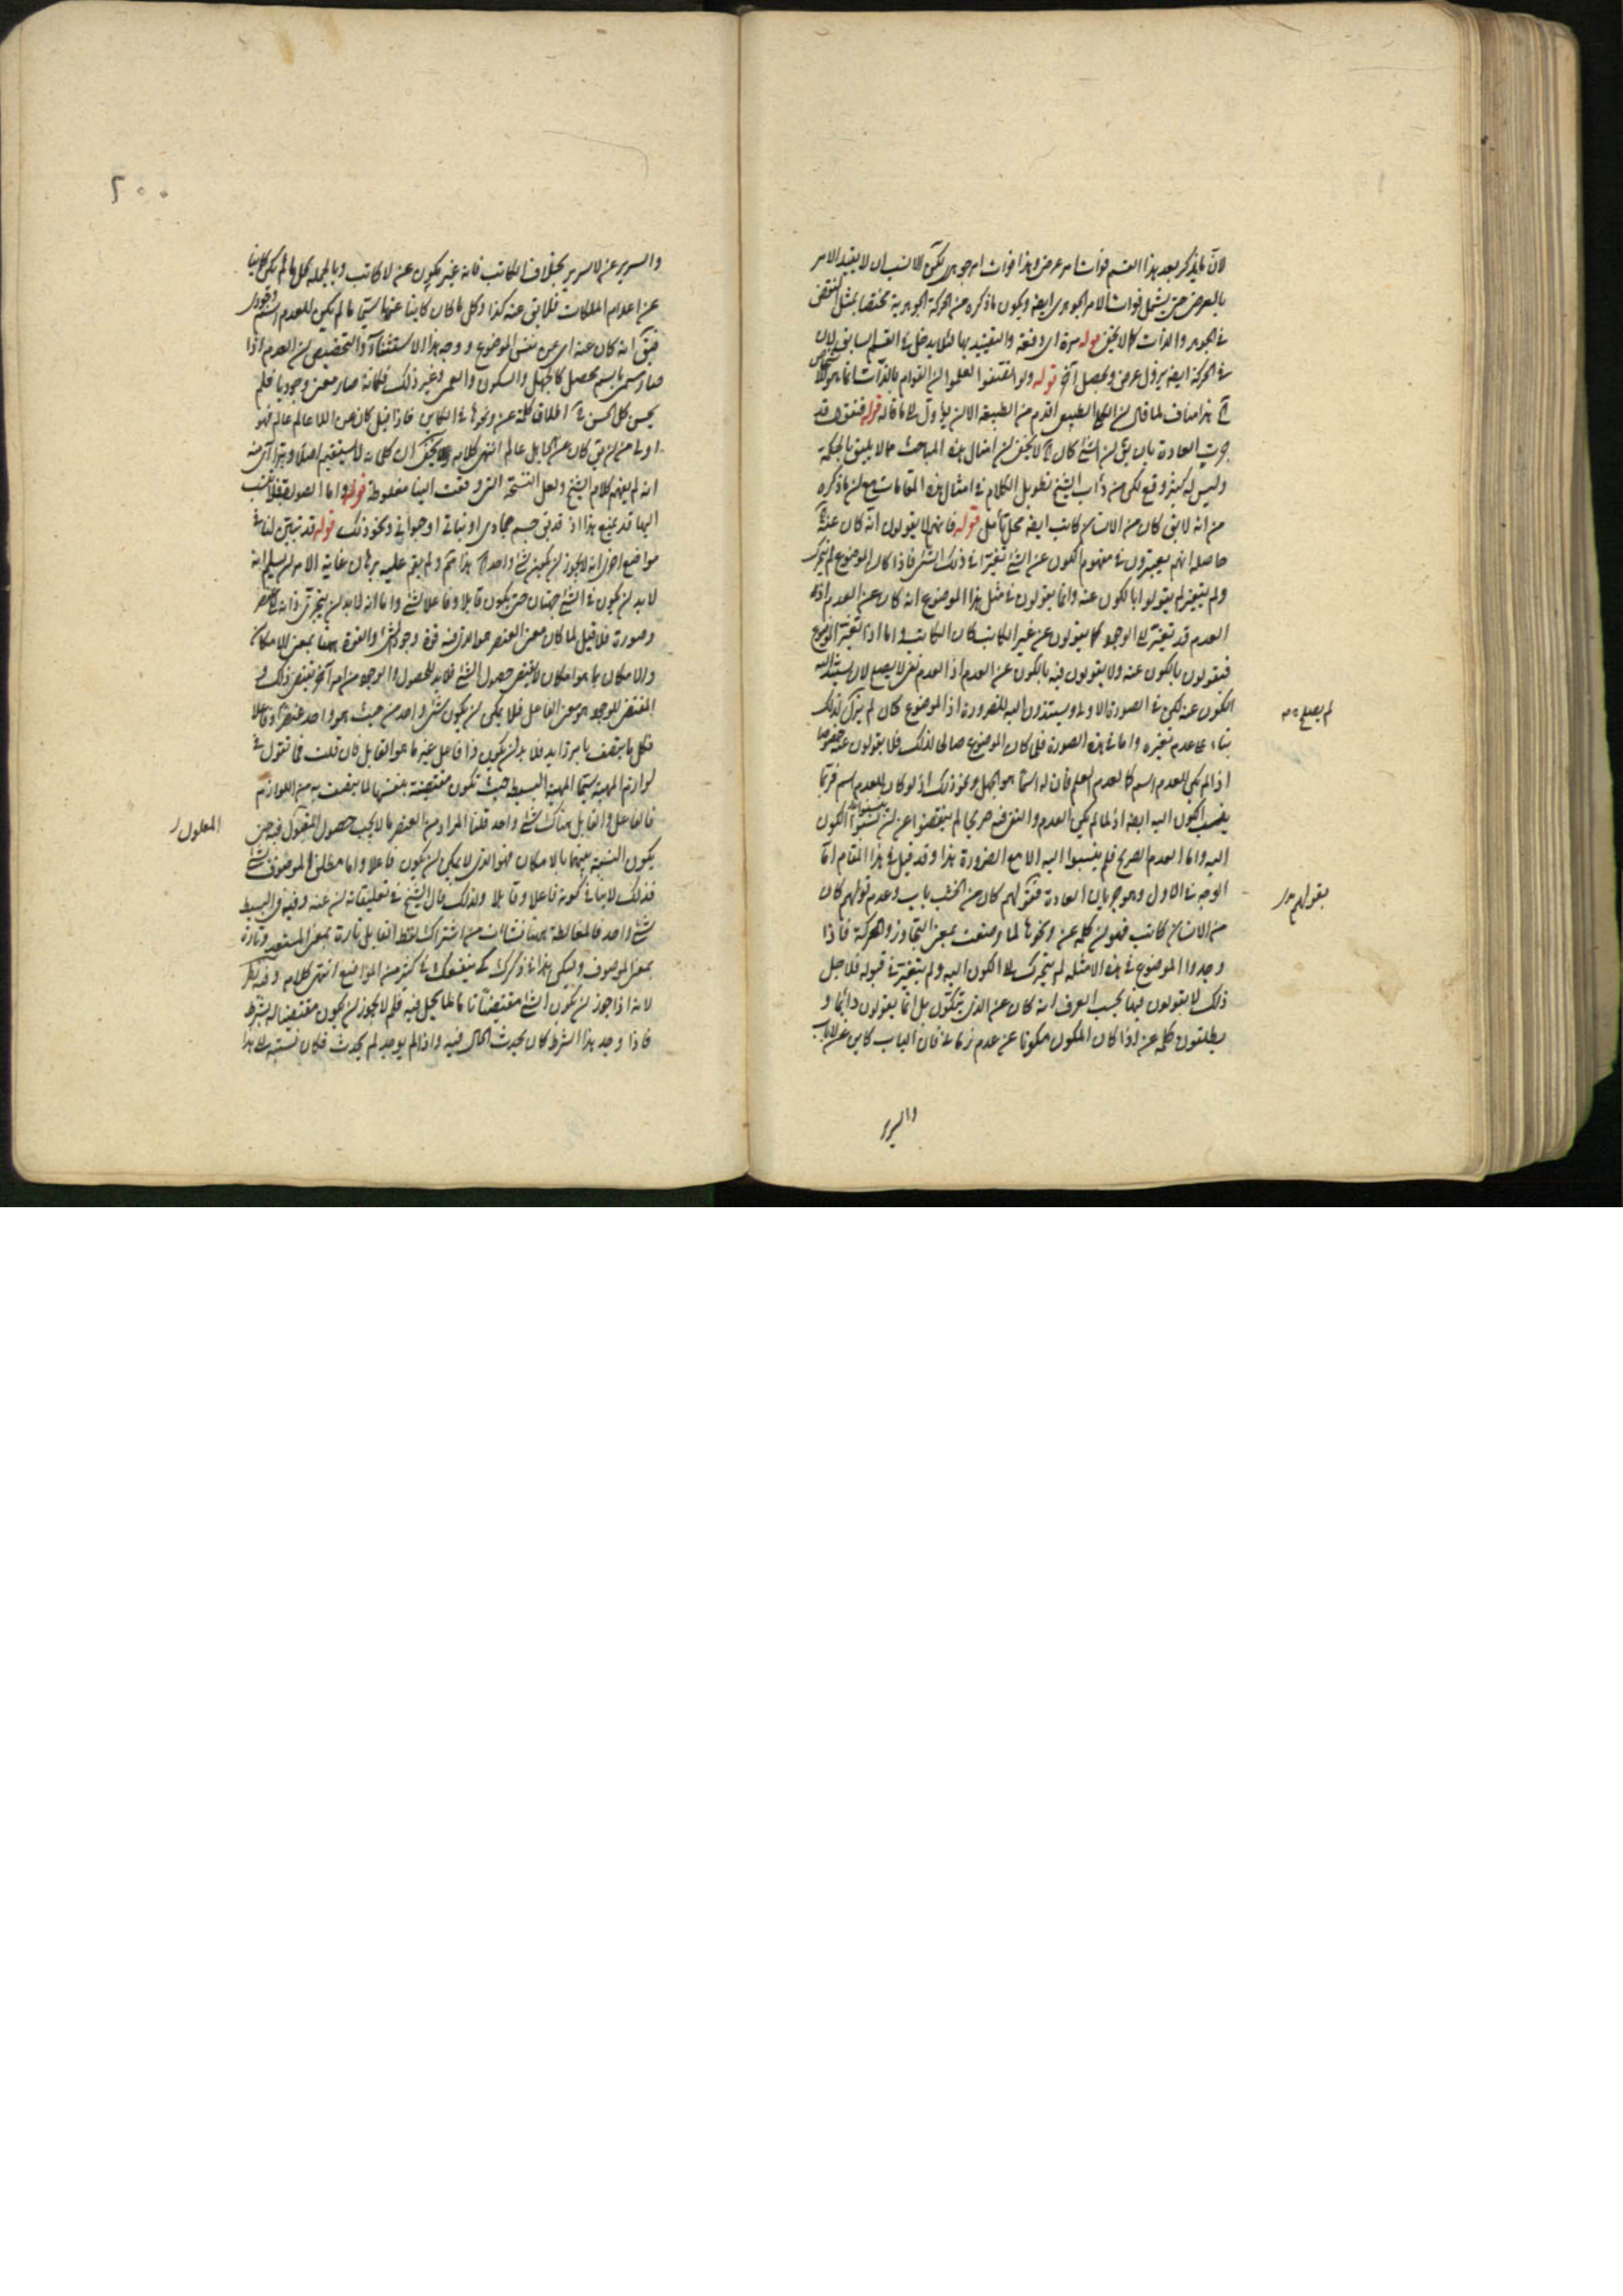 لان ما يذكر بعد هذا القسم فوات امر عرضي وهذا فوات امر جوهري لكن الانسب ان لا يقيد الامر
بالعرضي حتى يشمل فوات الامر الجوهري ايضا ويكون ما ذكره من الحركة الجوهرية مختصا بمثل
في الجوهر والذات كما لا يخفى قوله مرة اى دفعة والتقييد بها لئلا يدخل في القسم السابق لان
في الحركة ايضا يزول عرض ويحصل آخر قوله ولو انصفوا لعلموا ان القوام بالذات انما هو
هذا مناف لما قال ان الطبيعي اقدم من الطبيعة الا ان ياول الى ما قاله قوله فنقول قد
جرت العادة بان يق ان الشئ كان لا يخفى ان امثال هذه المباحث مما لا يليق بالحكمة
وليس له كثير وقع لكن من دأب الشيخ تطويل الكلام في امثال هذه المقامات مع ان ما ذكره
من انه لا يق كان من الانسان كاتب ايضا محل تأمل قوله فانهم لا يقولون انه كان عنه
حاصله انهم يعتبرون في مفهوم الكون عن الشئ تغيرا في ذلك الشئ فاذا كان الموضوع لم يتحرك
ولم يتغير لم يقولوا بالكون عنه وانما يقولون في مثل هذا الموضوع انه كان عن العدم اذ
العدم قد تغير الى الوجود كما يقولون عن غير الكاتب كان الكاتب واما اذا تغير الموضوع
فيقولون بالكون عنه ولا يقولون فيه بالكون عن العدم اذ العدم نفي لا يصلح لان يستند اليه
الكون عنه لكن في الصورة الاولى يسندون اليه للضرورة اذ الموضوع كان لم يزل كذلك
بناء على عدم تغيره واما في هذه الصورة فلما كان الموضوع صالحا لذلك فلا يقولون عنه خصوصا
اذا لم يكن للعدم اسم كالعدم العلم فان له اسما هو الجهل ونحو ذلك اذ لو كان للعدم اسم فربما
ينسب الكون اليه ايضا اذ لما لم يكن العدم والنفي فيه صريحا لم ينقبضوا عن ان ينسبوا الكون
اليه واما العدم الصريح فلم ينسبوا اليه الا مع الضرورة هذا وقد قيل في هذا المقام اما
الوجه في الاول وهو جريان العادة فقولهم كان من الخشب باب وعدم قولهم كان
من الانسان كاتب فهو ان كلمة عن ونحوها لما وضعت بمعنى التجاوز والحركة فاذا
وجدوا الموضوع في هذه الامثلة لم يتحرك الى الكون اليه ولم يتغير في قبوله فلاجل
ذلك لا يقولون فيها بحسب العرف انه كان عن الذي يتكون بل انما يقولون دائما و
يطلقون كلمة عن اذا كان المكون مكونا عن عدم زماني فان الباب كاين عن لا باب
لم يصلح
بقولهم
والسرير
٢٠٠
والسرير عن لا سرير بخلاف الكاتب فانه غير مكون عن لا كاتب وبالجملة كل ما لم يكن كاينا
عن اعدام الملكات فلا يق عنه كذا وكل ما كان كاينا عنها سيما ما لم يكن للعدم اسم وجودي
فيق انه كان عنه اى عن نفس الموضوع ووجه هذا الاستثناء والتخصيص ان العدم اذا
صار مسمى باسم محصل كالجهل والسكون والعمى وغير ذلك فكانه صار معنى وجوديا فلم
يحسن كل الحسن في اطلاق كلمة عن ونحوها في الكاين فاذا قيل كان من اللاعالم عالم فهو
اولى من ان يق كان عن الجاهل عالم انتهى كلامه ولا يخفى ان كلامه لا يستقيم اصلا
انه لم يفهم كلام الشيخ ولعل النسخة التي وقعت الينا مغلوطة قوله واما الصورة فلا تنسب
اليها قد يمنع هذا اذ قد يق جسم جمادي او نباتي او حيواني ونحو ذلك قوله قد تبين لنا في
مواضع اخرى انه لا يجوز ان يكون شئ واحد هذا لم يتم ولم يقم عليه برهان غاية الامر ان يسلم انه
لا بد ان يكون في الشئ جهتان حتى يكون قابلا وفاعلا لشئ واما انه لا بد ان يتجزى ذاته الى عنصر
وصورة فلا قيل لما كان معنى العنصر هو الذي فيه قوة وجود الشئ والقوة هنا بمعنى الامكان
والامكان بما هو امكان لا يقتضى حصول الشئ فلا بد للحصول والوجود من امر آخر يقتضى ذلك و
المقتضى للوجود هو معنى الفاعل فلا يمكن ان يكون شئ واحد من حيث هو واحد عنصرا وفاعلا
فكل ما يتصف بامر زايد فلا بد ان يكون ذا فاعل غير ما هو القابل فان قلت فما تقول في
لوازم المهية سيما المهية البسيطة حيث تكون مقتضية بنفسها لما يتصف به من اللوازم
فالفاعل والقابل هناك شئ واحد قلنا المراد من العنصر ما لا يجب حصول المقبول فيه حين
يكون النسبة بينهما بالامكان فهو الذي لا يمكن ان يكون فاعلا واما مطلق الموصوف بشئ
فذلك لا ينافي كونه فاعلا وقابلا ولذلك قال الشيخ في تعليقاته ان عنه وفيه في البسيط
شئ واحد فالمغالطة ههنا نشأت من اشتراك لفظ القابل تارة بمعنى المستعد وتارة
بمعنى الموصوف وليكن هذا في ذكرك كى ينفعك في كثير من المواضع انتهى كلامه وفيه نظر
لانه اذا جوز ان يكون الشئ مقتضيا تاما لما يحل فيه فلم لا يجوز ان يكون مقتضيا له بشرط
فاذا وجد هذا الشرط كان يحدث الحال فيه واذا لم يوجد لم يحدث فكان نسبته الى هذا
المعلول